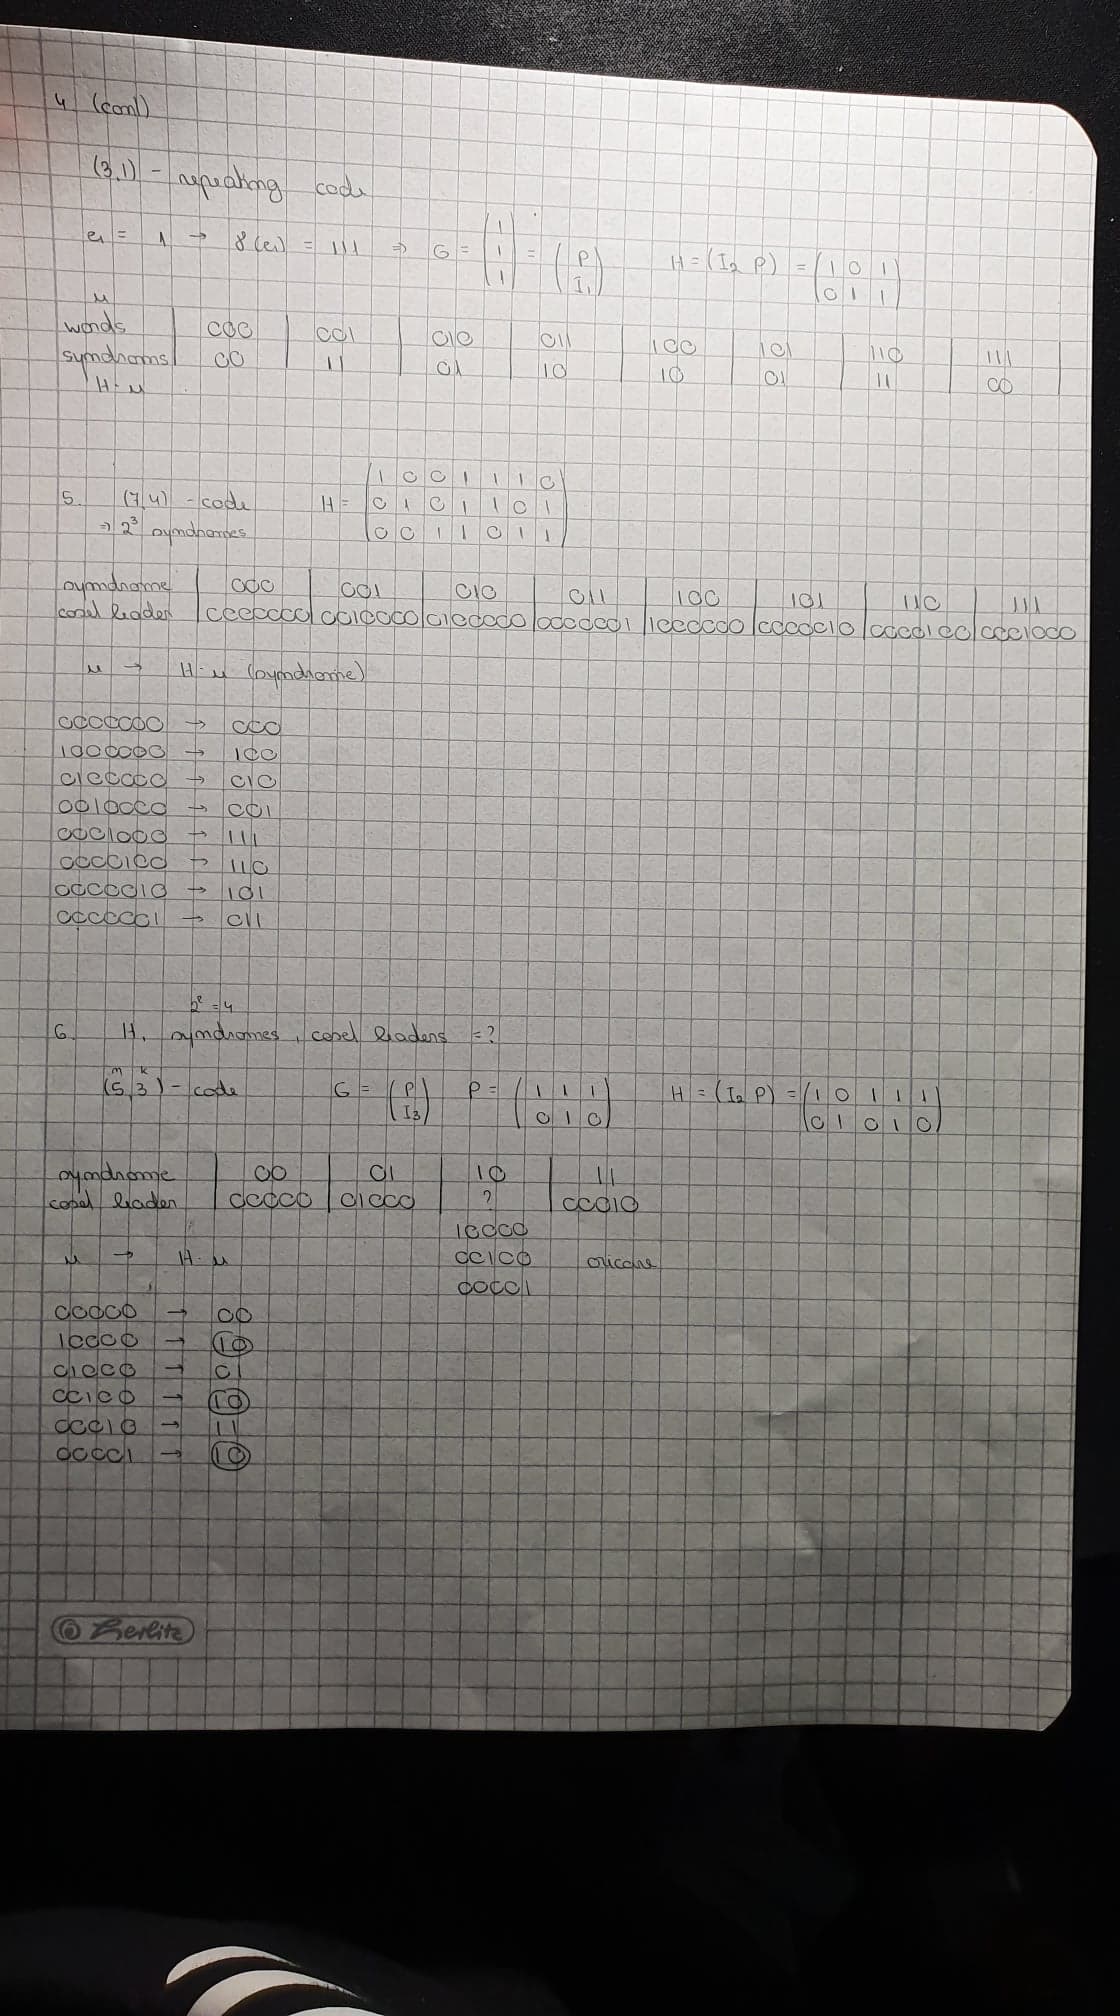 4 (cont)
(3,1) - repeating code
e₁ = 1 → γ(e₁) = 111 ⇒ G = (1 1 1) = (P I₁) H = (I₂ P) = (1 0 1
0 1 1)
u
words 000 001 010 011 100 101 110 111
syndroms 00 11 01 10 10 01 11 00
H·u
5. (7,4) - code H = (1 0 0 1 1 1 0
0 1 0 1 1 0 1
0 0 1 1 0 1 1)
⇒ 2³ syndromes
syndrome 000 001 010 011 100 101 110 111
coset leader 0000000 0010000 0100000 0000001 1000000 0000010 0000100 0001000
u → H·u (syndrome)
0000000 → 000
1000000 → 100
0100000 → 010
0010000 → 001
0001000 → 111
0000100 → 110
0000010 → 101
0000001 → 011
2² = 4
6. H, syndromes, coset leaders = ?
n k
(5,3) - code G = (P I₃) P = (1 1 1
0 1 0) H = (I₂ P) = (1 0 1 1 1
0 1 0 1 0)
syndrome 00 01 10 11
coset leader 00000 01000 ? 00010
10000
u → H·u 00100 oricare
00001
00000 → 00
10000 → 10
01000 → 01
00100 → 10
00010 → 11
00001 → 10
Herlitz